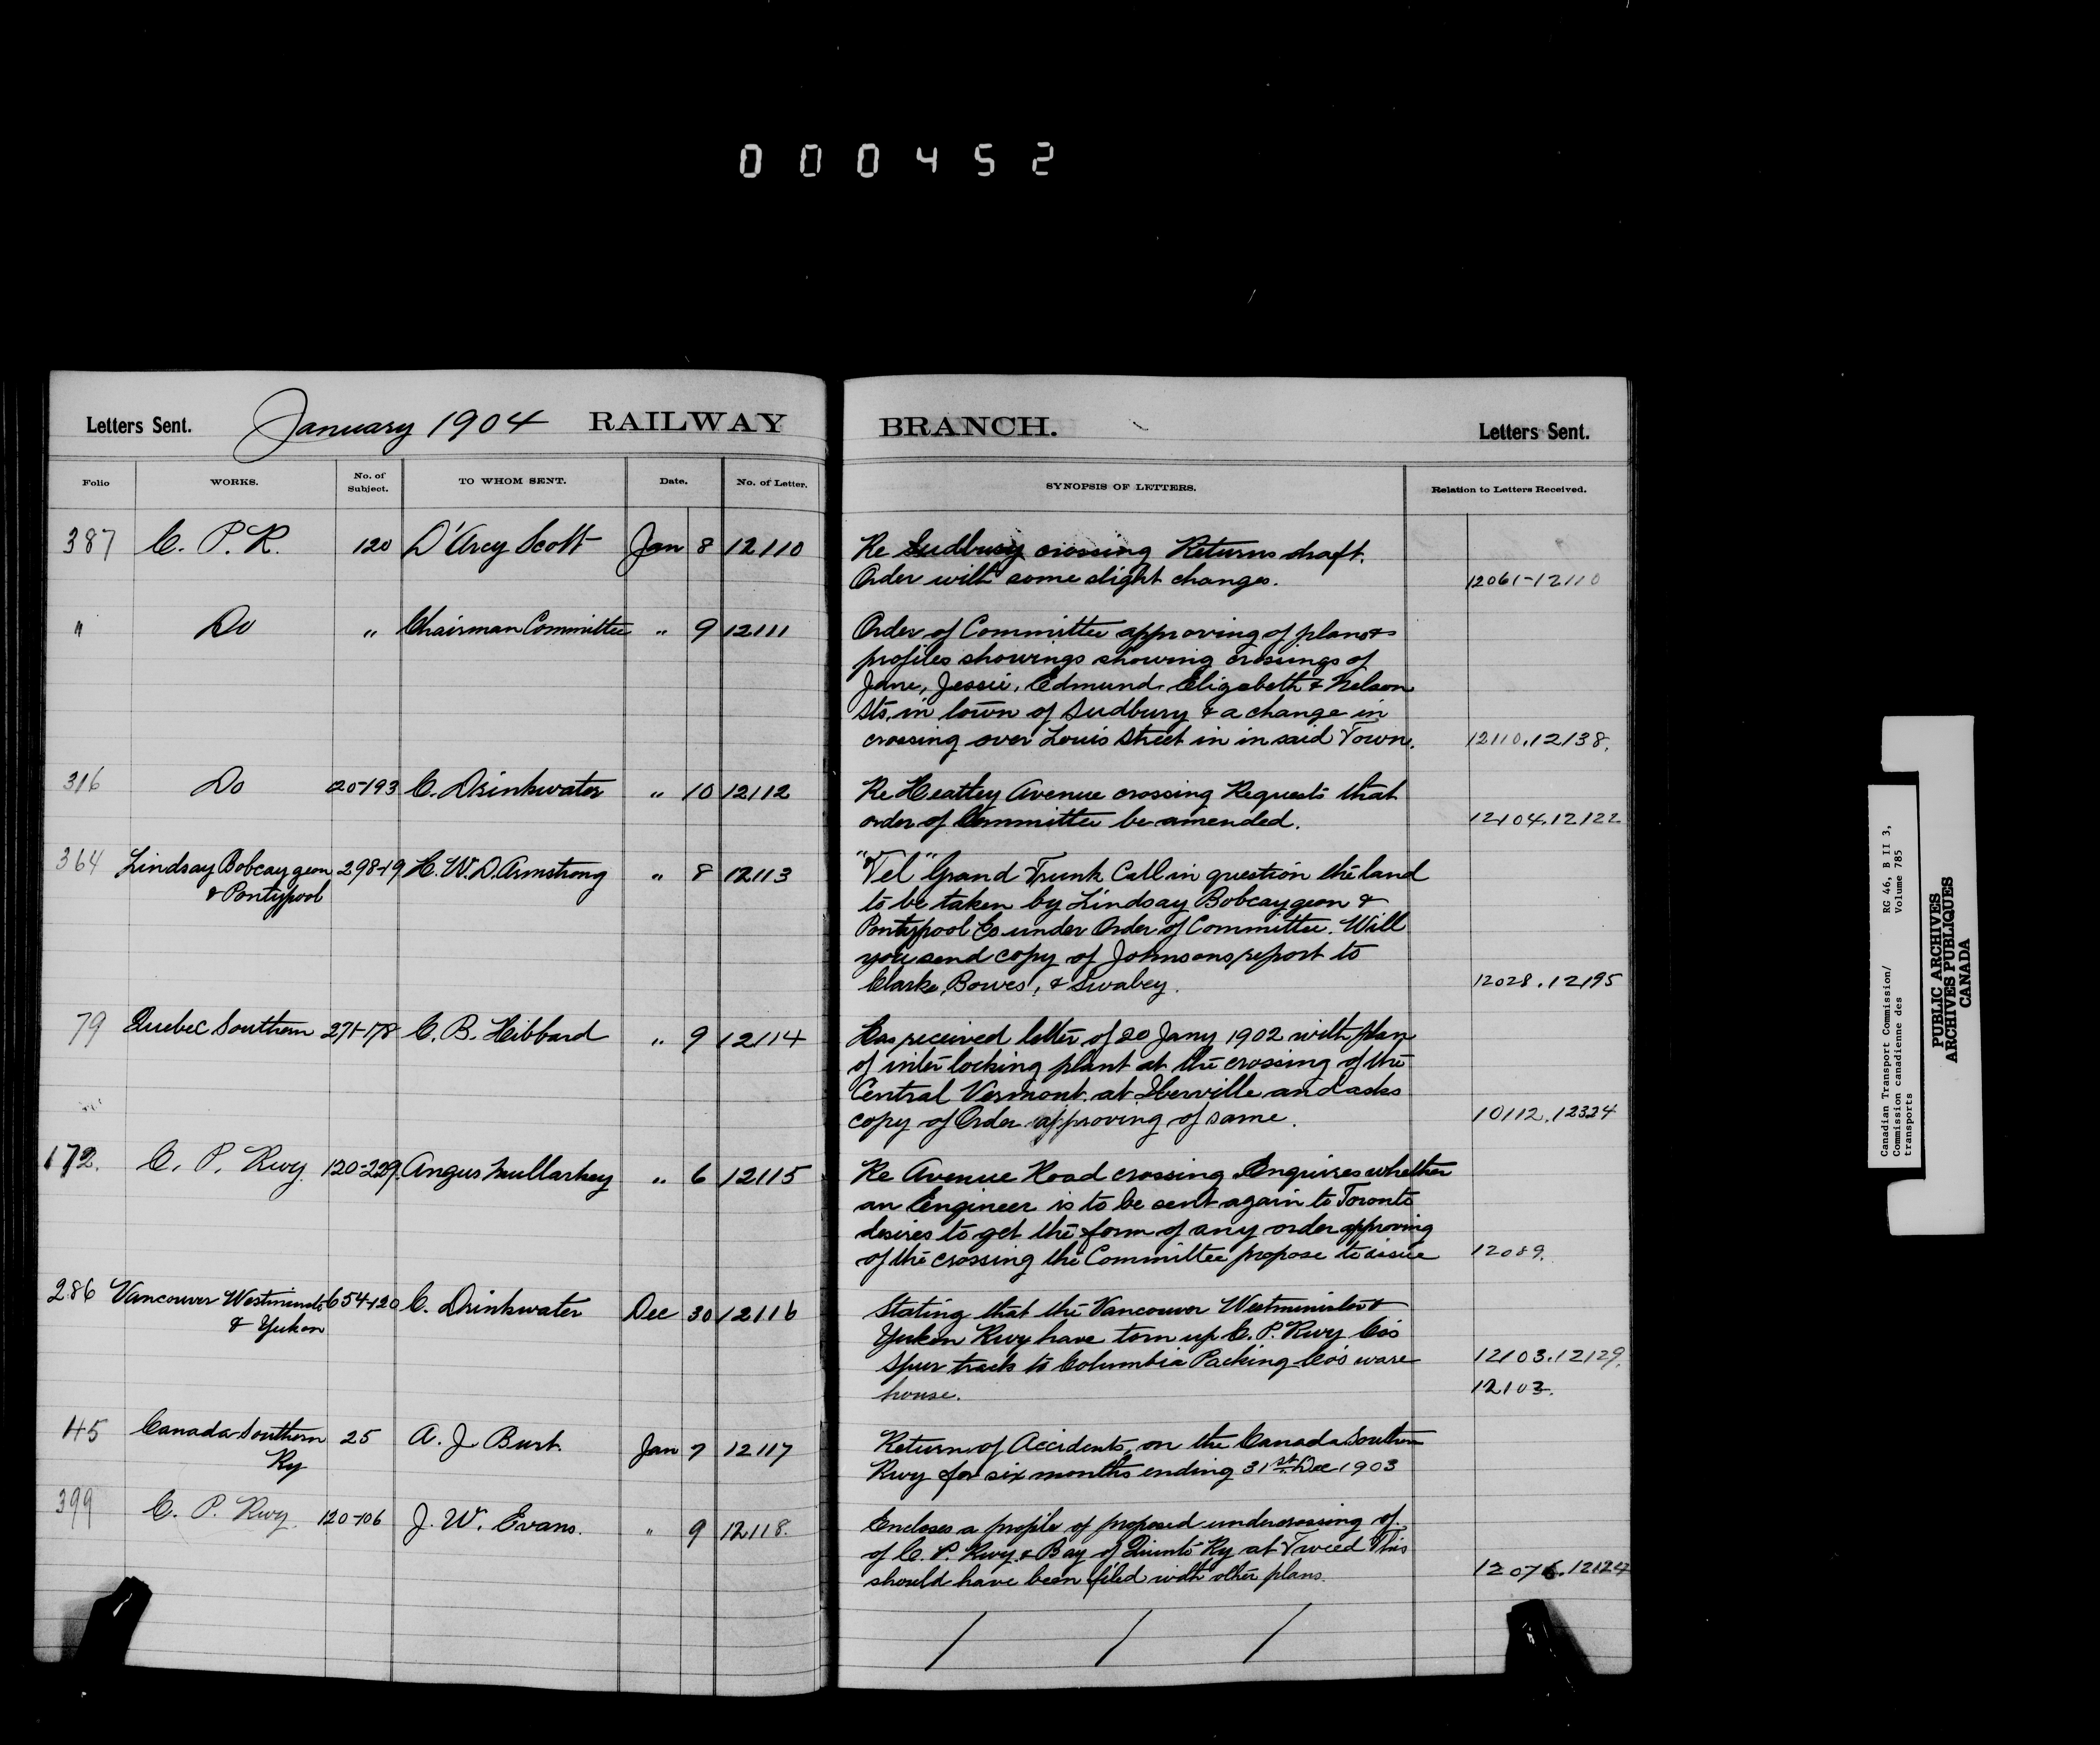 000452
Letters Sent. January 1904 RAILWAY BRANCH. Letters Sent.
Folio WORKS. No. of Subject. TO WHOM SENT. Date. No. of Letter. SYNOPSIS OF LETTERS. Relation to Letters Received.
387 C. P. R. 120 D'Arcy Scott Jan 8 12110 Re Sudbury crossing Returns draft.
Order with some slight changes. 12061-12110
" Do " Chairman Committee " 9 12111 Order of Committee approving of plans &
profiles showings showing crossings of
Jane, Jessie, Edmund, Elizabeth & Nelson
Sts, in town of Sudbury & a change in
crossing over Louis Street in in said Town. 12110.12138.
316 Do 120-193 C. Drinkwater " 10 12112 Re Heatley Avenue crossing Requests that
order of Committee be amended. 12104.12122
364 Lindsay Bobcaygeon 298-19 H. W. D. Armstrong " 8 12113 "Tel" Grand Trunk Call in question the land
& Pontypool to be taken by Lindsay Bobcaygeon &
Pontypool Co under Order of Committee. Will
you send copy of Johnsons report to
Clarke, Bowes, & Swabey. 12028.12195
79 Quebec Southern 271-178 C. B. Hibbard " 9 12114 Has received letter of 20 Jany 1902 with plan
of inter locking plant at the crossing of the
Central Vermont at Iberville and asks
copy of Order approving of same. 10112.12324
172. C. P. Rwy. 120-229. Angus Mullarkey " 6 12115 Re Avenue Road crossing Enquires whether
an Engineer is to be sent again to Toronto
desires to get the form of any order approving
of the crossing the Committee propose to issue 12089.
286 Vancouver Westminster 654-120 C. Drinkwater Dec 30 12116 Stating that the Vancouver Westminster &
& Yukon Yukon Rwy have torn up C. P. Rwy Co's
spur track to Columbia Packing Co's ware 12103.12129.
house. 12103.
145 Canada Southern 25 A. J. Burt. Jan 7 12117 Return of Accidents, on the Canada Southern
Ry Rwy for six months ending 31st Dec 1903
399 C. P. Rwy. 120-106 J. W. Evans. " 9 12118. Encloses a profile of proposed undercrossing of
of C. P. Rwy. & Bay of Quinte Ry at Tweed This
should have been filed with other plans. 12076.12124
Canadian Transport Commission/ RG 46, B II 3,
Commission canadienne des Volume 785
transports
PUBLIC ARCHIVES
ARCHIVES PUBLIQUES
CANADA